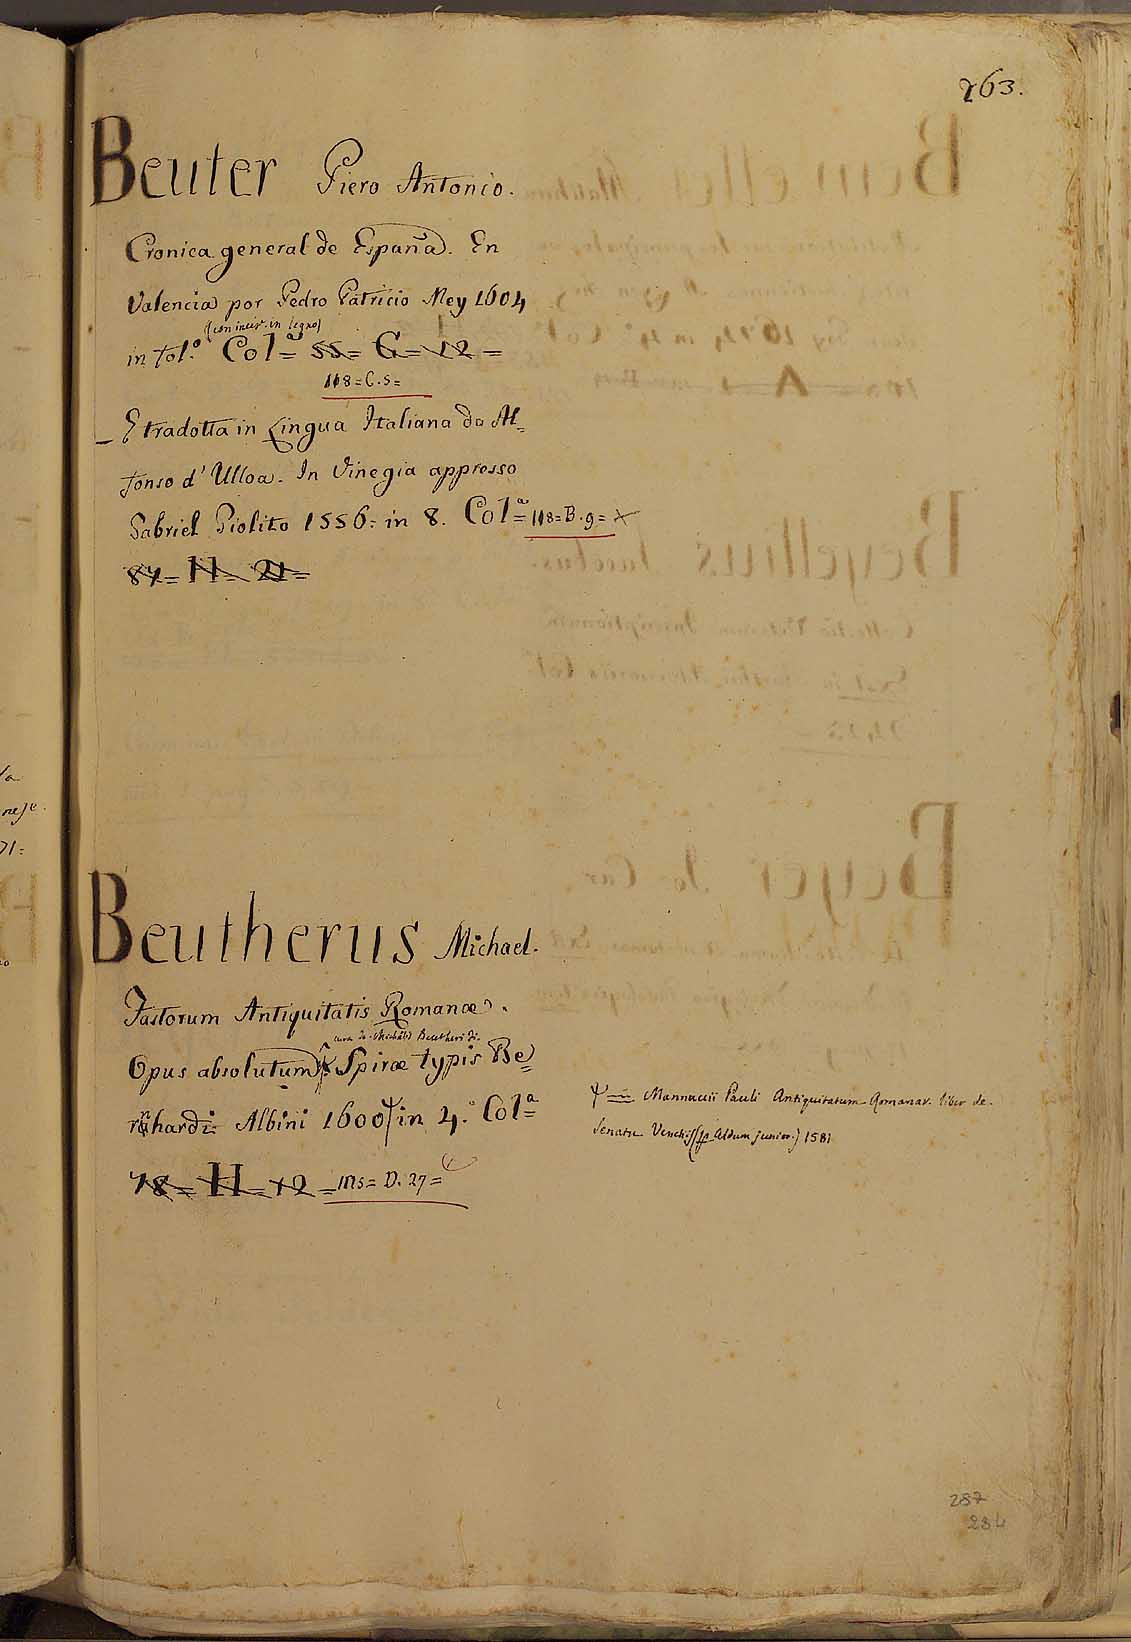 263.
Beuter Piero Antonio.
Cronica general de España. En
Valencia por Pedro Patricio Mey 1604
(con incis. in legno)
in fol.º Col.ª 55= G= 12=
118=C.5=
_ E tradotta in Lingua Italiana da Al=
fonso d'Ulloa. In Vinegia appresso
Gabriel Giolito 1556= in 8. Col.ª= 118=B.9=
87= H= 21=
Beutherus Michael.
Fastorum Antiquitatis Romanæ.
cura Jo. Michaëlis Beutheri fi.
Opus absolutum Spiræ typis Be=
rnhardi Albini 1600 in 4.º Col.ª=
78= H= 12= 115= D. 27=
Mannucii Pauli Antiquitatum Romanar. liber de
Senatu Venetijs (ap. Aldum junior.) 1581
287
284